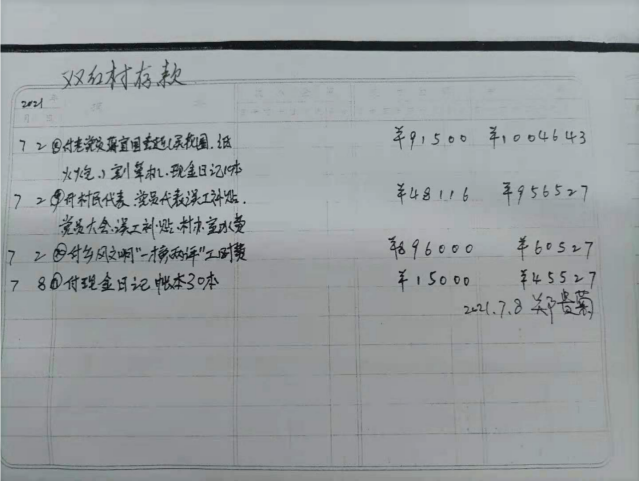 双红村存款
2021
7 2 付老党员蒋宜国去世,买花圈、纸 ¥91500 ¥1004643
火炮、计算机、现金日记10本
7 2 付村民代表、党员代表误工补贴、 ¥48116 ¥956527
党员大会误工补贴、村办室水费
7 2 付乡风文明"一榜两评"工时费 ¥896000 ¥60527
7 8 付现金日记帐本30本 ¥15000 ¥45527
2021.7.8 郑贵菊